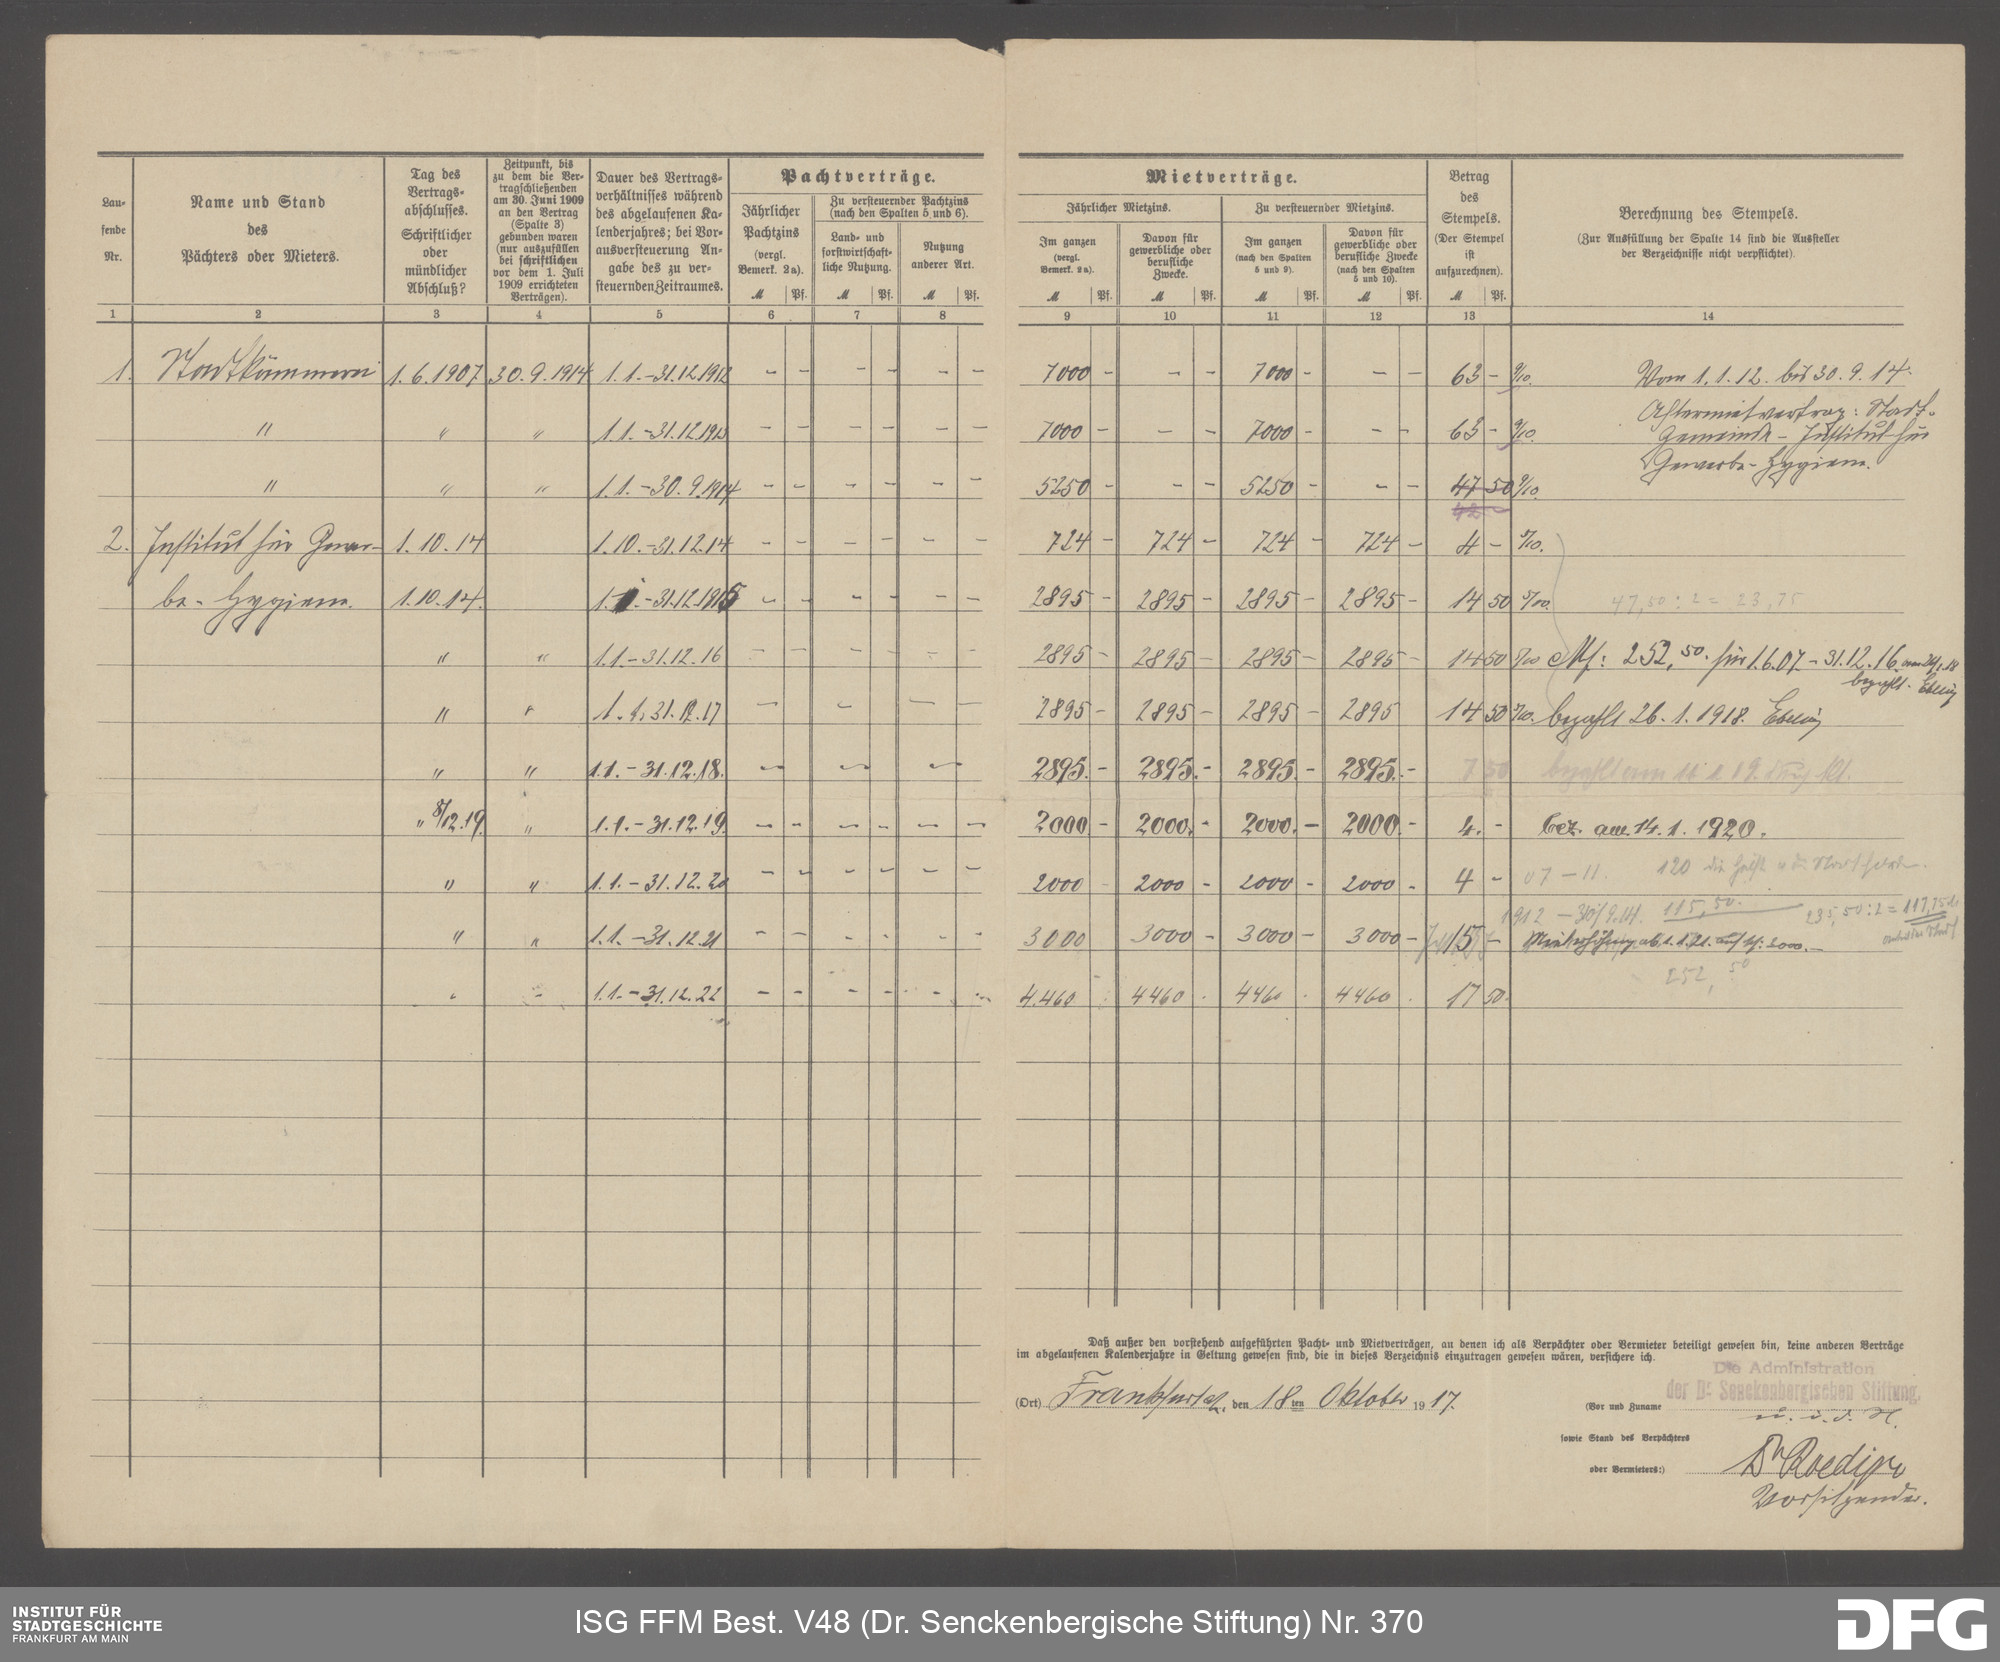 Lau-
fende
Nr.
Name und Stand
des
Pächters oder Mieters.
Tag des
Vertrags-
abschlusses.
Schriftlicher
oder
mündlicher
Abschluß?
Zeitpunkt, bis
zu dem die Ver-
tragschließenden
am 30. Juni 1909
an den Vertrag
(Spalte 3)
gebunden waren
(nur auszufüllen
bei schriftlichen
vor dem 1. Juli
1909 errichteten
Verträgen).
Dauer des Vertrags-
verhältnisses während
des abgelaufenen Ka-
lenderjahres; bei Vor-
ausversteuerung An-
gabe des zu ver-
steuernden Zeitraumes.
Pachtverträge.
Jährlicher
Pachtzins
(vergl.
Bemerk. 2a).
Zu versteuernder Pachtzins
(nach den Spalten 5 und 6).
Land- und
forstwirtschaft-
liche Nutzung.
Nutzung
anderer Art.
M Pf. M Pf. M Pf.
Mietverträge.
Jährlicher Mietzins.
Zu versteuernder Mietzins.
Im ganzen
(vergl.
Bemerk. 2a).
Davon für
gewerbliche oder
berufliche
Zwecke.
Im ganzen
(nach den Spalten
5 und 9).
Davon für
gewerbliche oder
berufliche Zwecke
(nach den Spalten
5 und 10).
M Pf. M Pf. M Pf. M Pf.
Betrag
des
Stempels.
(Der Stempel
ist
aufzurechnen).
M Pf.
Berechnung des Stempels.
(Zur Ausfüllung der Spalte 14 sind die Aussteller
der Verzeichnisse nicht verpflichtet).
1 2 3 4 5 6 7 8 9 10 11 12 13 14
1. Stadtkämmerei 1.6.1907 30.9.1914 1.1.-31.12.1912 - - - - - - 7000 - - - 7000 - - - 63 - 9/10. Vom 1.1.12. bis 30.9.14.
Aftermietvertrag: Stadt-
" " " 1.1.-31.12.1913 - - - - - - 7000 - - - 7000 - - - 63 - 9/10. Gemeinde - Institut für
Gewerbe-Hygiene.
" " " 1.1.-30.9.1914 - - - - - - 5250 - - - 5250 - - - 47 50 9/10.
42.-
2. Institut für Gewer- 1.10.14 1.10.-31.12.14 - - - - - - 724 - 724 - 724 - 724 - 4 - 5/10.
be-Hygiene. 1.10.14. 1.1.-31.12.1915 - - - - - - 2895 - 2895 - 2895 - 2895 - 14 50 5/10. 47,50 : 2 = 23,75
" " 1.1.-31.12.16 - - - - - - 2895 - 2895 - 2895 - 2895 - 14 50 5/10 M: 252,50. für 1.6.07.-31.12.16.
bezahlt. Ebeling
" " 1.1.31.12.17 - - - - 2895 - 2895 - 2895 - 2895 14 50 5/10. bezahlt 26.1.1918. Ebeling
" " 1.1.-31.12.18. - - - 2895.- 2895.- 2895.- 2895.- 7 50 bezahlt am 11.1.19.
" 8/12.19. " 1.1.-31.12.19. - - - - - - 2000.- 2000.- 2000.- 2000.- 4.- bez. am 14.1.1920.
" " 1.1.-31.12.20 - - - - - - 2000 - 2000 - 2000 - 2000 - 4 - 07-11. 120
1912 - 115,50. 235,50:2 = 117,75
" " 1.1.-31.12.21 - - - - - - 3000 3000 - 3000 - 3000 - 15 - Mieterhöhung ab 1.1.21. auf M: 3000.-
252,50
" " 1.1.-31.12.22 - - - - - - 4.460 4460 4460 4460 17 50
Daß außer den vorstehend aufgeführten Pacht- und Mietverträgen, an denen ich als Verpächter oder Vermieter beteiligt gewesen bin, keine anderen Verträge
im abgelaufenen Kalenderjahre in Geltung gewesen sind, die in dieses Verzeichnis einzutragen gewesen wären, versichere ich.
Die Administration
der Dr. Senckenbergischen Stiftung.
(Ort) Frankfurt a/M., den 18ten Oktober 1917.
(Vor und Zuname
sowie Stand des Verpächters
oder Vermieters:)
Dr Roediger
Vorsitzender.
INSTITUT FÜR
STADTGESCHICHTE
FRANKFURT AM MAIN
ISG FFM Best. V48 (Dr. Senckenbergische Stiftung) Nr. 370
DFG